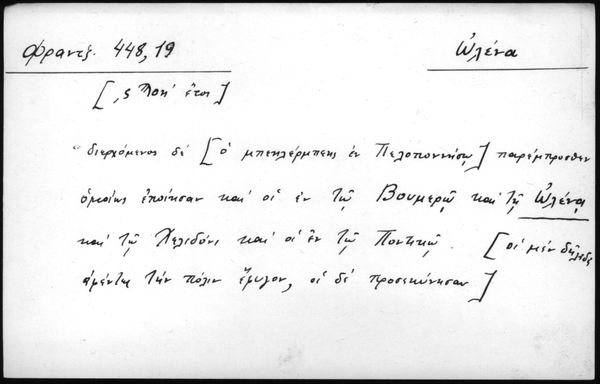 Φραντζ. 448,19
Ὠλένα
[,ς ϡξη' ἔτει]
"διερχόμενος δὲ [ὁ μπεκλέρμπεης ἐν Πελοποννήσῳ] παρέμπροσθεν
ὁμοίως ἐποίησαν καὶ οἱ ἐν τῷ Βουμερῷ καὶ τῇ Ὠλένᾳ
καὶ τῷ Χελιδόνι καὶ οἱ ἐν τῷ Ποντικῷ. [οἱ μὲν δηλαδὴ
τὴν πόλιν ἔφυγον, οἱ δὲ προσεκύνησαν]